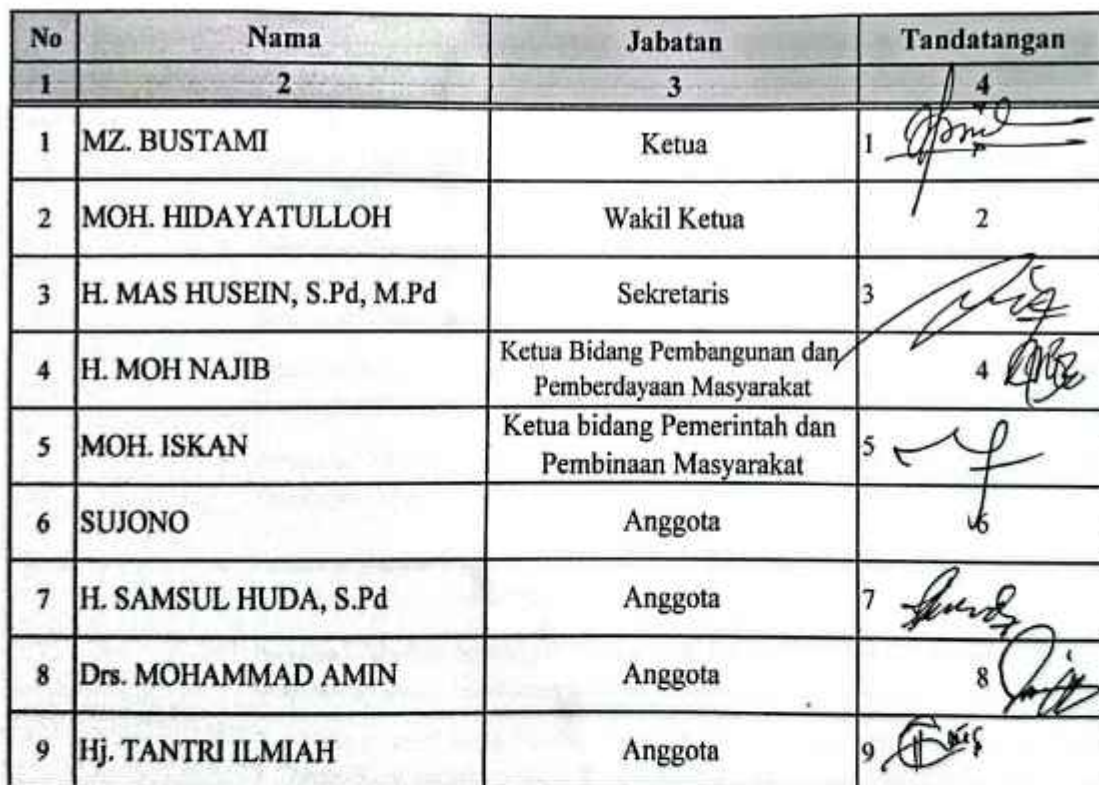 No Nama Jabatan Tandatangan
1 2 3 4
1 MZ. BUSTAMI Ketua 1
2 MOH. HIDAYATULLOH Wakil Ketua 2
3 H. MAS HUSEIN, S.Pd, M.Pd Sekretaris 3
4 H. MOH NAJIB Ketua Bidang Pembangunan dan
Pemberdayaan Masyarakat 4
5 MOH. ISKAN Ketua bidang Pemerintah dan
Pembinaan Masyarakat 5
6 SUJONO Anggota 6
7 H. SAMSUL HUDA, S.Pd Anggota 7
8 Drs. MOHAMMAD AMIN Anggota 8
9 Hj. TANTRI ILMIAH Anggota 9